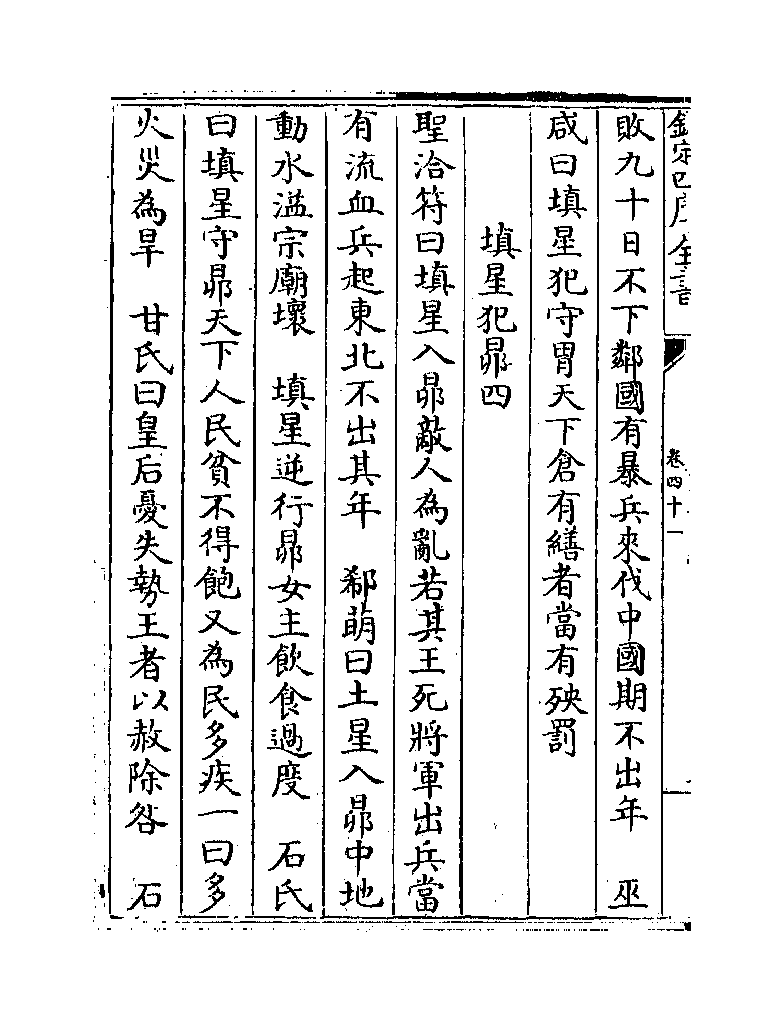 欽定四庫全書
卷四十一
敗九十日不下鄰國有暴兵來伐中國期不出年　巫
咸曰填星犯守胃天下倉有繕者當有殃罰
填星犯昴四
聖洽符曰填星入昴敵人為亂若其王死將軍出兵當
有流血兵起東北不出其年　郗萌曰土星入昴中地
動水溢宗廟壞　填星逆行昴女主飲食過度　石氏
曰填星守昴天下人民貧不得飽又為民多疾一曰多
火災為旱　甘氏曰皇后憂失勢王者以赦除咎　石